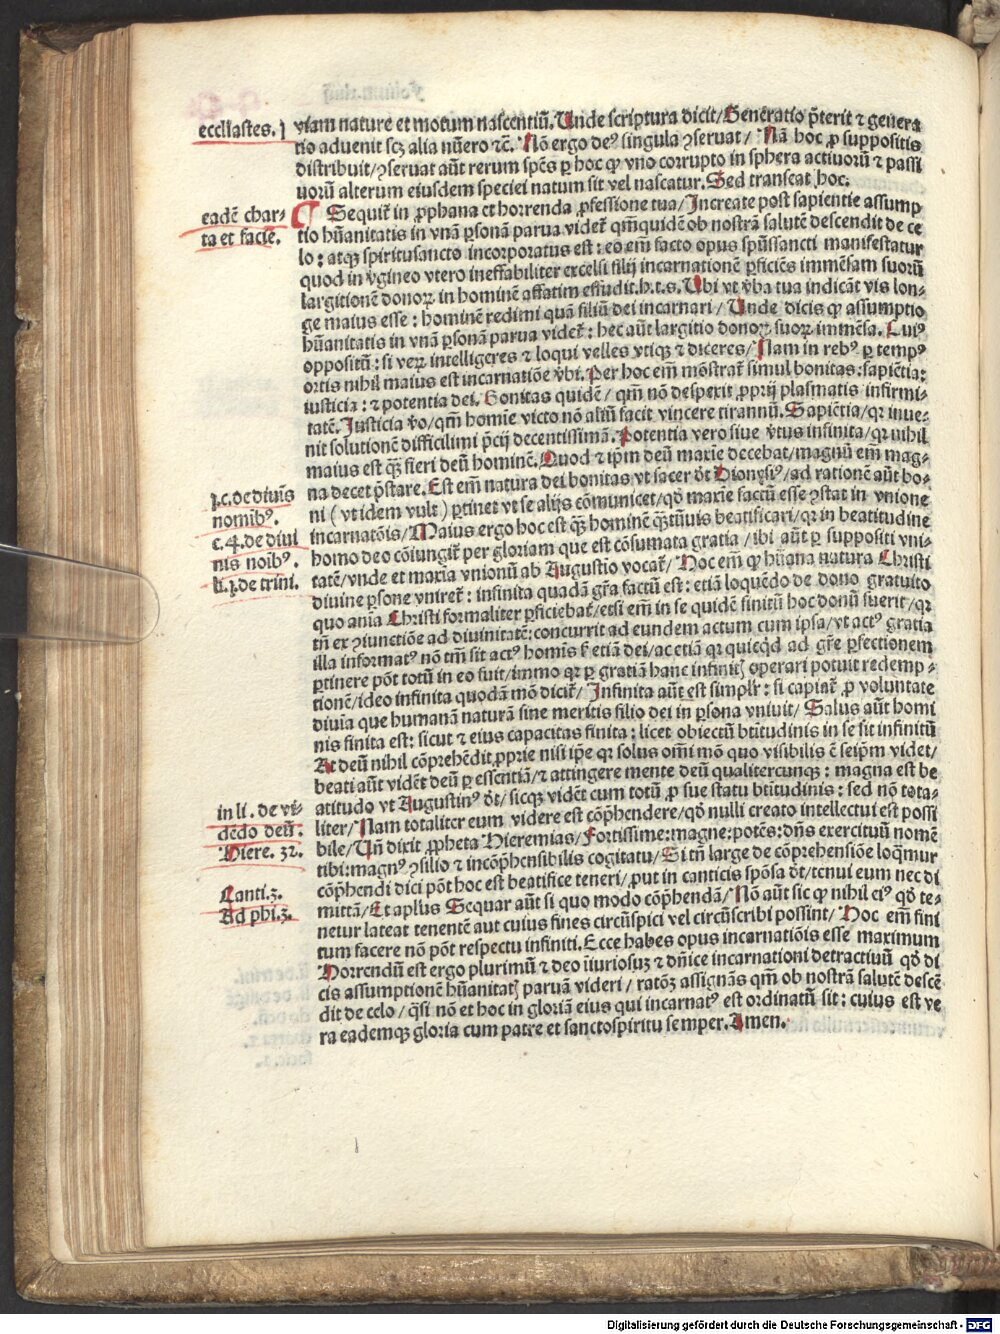 ecclīastes. j
viam nature et motum nascentiū. Unde scriptura dicit/ Generatio p̄terit ⁊ genera
tio aduenit scꝫ alia nūero ⁊c̄. Nō ergo deꝰ singula ꝯseruat/ Nā hoc ꝓ suppositis
distribuit/ ꝯseruat aūt rerum spēs ꝑ hoc ꝙ vno corrupto in sphera actiuorū ⁊ passi
uorū alterum eiusdem speciei natum sit vel nascatur. Sed transeat hoc.
eadē char-
ta et facie.
¶ Sequit̄ in ꝓphana et horrenda ꝓfessione tua/ Increate post sapientie assump
tio hūanitatis in vnā ꝑsonā parua videt̄ qm̄quidē ob nostrā salutē descendit de ce
lo: atqꝫ spiritusancto incorporatus est: eo em̄ facto opus spūssancti manifestatur
quod in v̄gineo vtero ineffabiliter excelsi filij incarnationē ꝑficiēs immēsam suorū
largitionē donoꝝ in hominē affatim effudit.h.t.s. Ubi vt v̄ba tua indicāt vis lon-
ge maius esse: hominē redimi quā filiū dei incarnari/ Unde dicis ꝙ assumptio
hūanitatis in vnā ꝑsonā parua videt̄: hec aūt largitio donoꝝ suoꝝ immēsa. Cuiꝰ
oppositū: si veꝝ intelligeres ⁊ loqui velles vtiqꝫ ⁊ diceres/ Nam in rebꝰ ꝑ tempꝰ
ortis nihil maius est incarnatiōe v̄bi. Per hoc em̄ mōstrat̄ simul bonitas: sapiētia:
iusticia: ⁊ potentia dei. Bonitas quidē/ qm̄ nō despexit ꝓprij plasmatis infirmi-
tatē. Justicia v̄o/ qm̄ homīe victo nō aliū facit vincere tirannū. Sapiētia/ qꝛ inue-
nit solutionē difficilimi p̄cij decentissimā. Potentia vero siue v̄tus infinita/ qꝛ nihil
maius est qꝫ̄ fieri deū hominē. Quod ⁊ ip̄m deū maxīe decebat/ magnū em̄ mag-
na decet p̄stare. Est em̄ natura dei bonitas vt sacer dt̄ Dionysiꝰ/ ad rationē aūt bo-
j.c. de diuīs
nomibꝰ.
ni ( vt idem vult ) ꝑtinet vt se alijs cōmunicet/ qd̄ maxīe factū esse ꝯstat in vnione
incarnatōis/ Maius ergo hoc est qꝫ̄ hominē qꝫ̄tūuis beatificari/ qꝛ in beatitudine
c. 4. de diui
nis noībꝰ.
homo deo cōiungit̄ per gloriam que est cōsumata gratia/ ibi aūt ꝑ suppositi vni-
li. j. de trini.
tatē/ vnde et maxīa vnionū ab Augustīo vocat̄/ Hoc em̄ ꝙ hūana natura Christi
diuine ꝑsone vniret̄: infinita quadā grā factū est: etiā loquēdo de dono gratuito
quo aīa Christi formaliter ꝑficiebat̄/ etsi em̄ in se quidē finitū hoc donū fuerit/ qꝛ
tn̄ ex ꝯiunctiōe ad diuinitatē: concurrit ad eundem actum cum ipsa/ vt actꝰ gratia
illa informatꝰ nō tm̄ sit actꝰ homīs s̄ etiā dei/ ac etiā qꝛ quicqd̄ ad grē ꝑfectionem
ꝑtinere pōt totū in eo fuit/ immo qꝛ ꝑ gratiā hanc infinitꝫ operari potuit redemp-
tionē/ ideo infinita quodā mō dicit̄/ Infinita aūt est simplr̄: si capiat̄ ꝓ voluntate
diuīa que humanā naturā sine meritis filio dei in ꝑsona vniuit/ Salus aūt homi
nis finita est: sicut ⁊ eius capacitas finita: licet obiectū bt̄itudinis in se sit infinitū
At deū nihil cōprehēdit ꝓprie nisi ip̄e qꝛ solus om̄i mō quo visibilis ē seip̄m videt/
beati aūt vidēt deū ꝑ essentiā/ ⁊ attingere mente deū qualitercunqꝫ: magna est be
in li. de vi-
dēdo deū.
atitudo vt Augustinꝰ dt̄/ sicqꝫ vidēt cum totū ꝓ sue statu bt̄itudinis: sed nō tota-
liter/ Nam totaliter eum videre est cōp̄hendere/ qd̄ nulli creato intellectui est possi
Hiere. 32.
bile/ Un̄ dixit ꝓpheta Hieremias/ Fortissime: magne: potēs: dn̄s exercituū nomē
tibi: magnꝰ ꝯsilio ⁊ incōp̄hensibilis cogitatu/ Si tn̄ large de cōprehensiōe loqm̄ur
Canti. 3.
cōp̄hendi dici pōt hoc est beatifice teneri/ ꝓut in canticis spōsa dt̄/ tenui eum nec di
Ad phi. 3.
mittā/ Et aplūs Sequar aūt si quo modo cōp̄hendā/ Nō aūt sic ꝙ nihil eiꝰ qd̄ te-
netur lateat tenentē aut cuius fines circūspici vel circūscribi possint/ Hoc em̄ fini
tum facere nō pōt respectu infiniti. Ecce habes opus incarnatiōis esse maximum
Horrendū est ergo plurimū ⁊ deo iniuriosuꝫ ⁊ dn̄ice incarnationi detractiuū qd̄ di
cis assumptionē hūanitatꝫ paruā videri/ ratōꝫ assignās qm̄ ob nostrā salutē descē
dit de celo/ q̄si nō et hoc in gloriā eius qui incarnatꝰ est ordinatū sit: cuius est ve
ra eademqꝫ gloria cum patre et sanctospiritu semper. Amen.
Digitalisierung gefördert durch die Deutsche Forschungsgemeinschaft - DFG